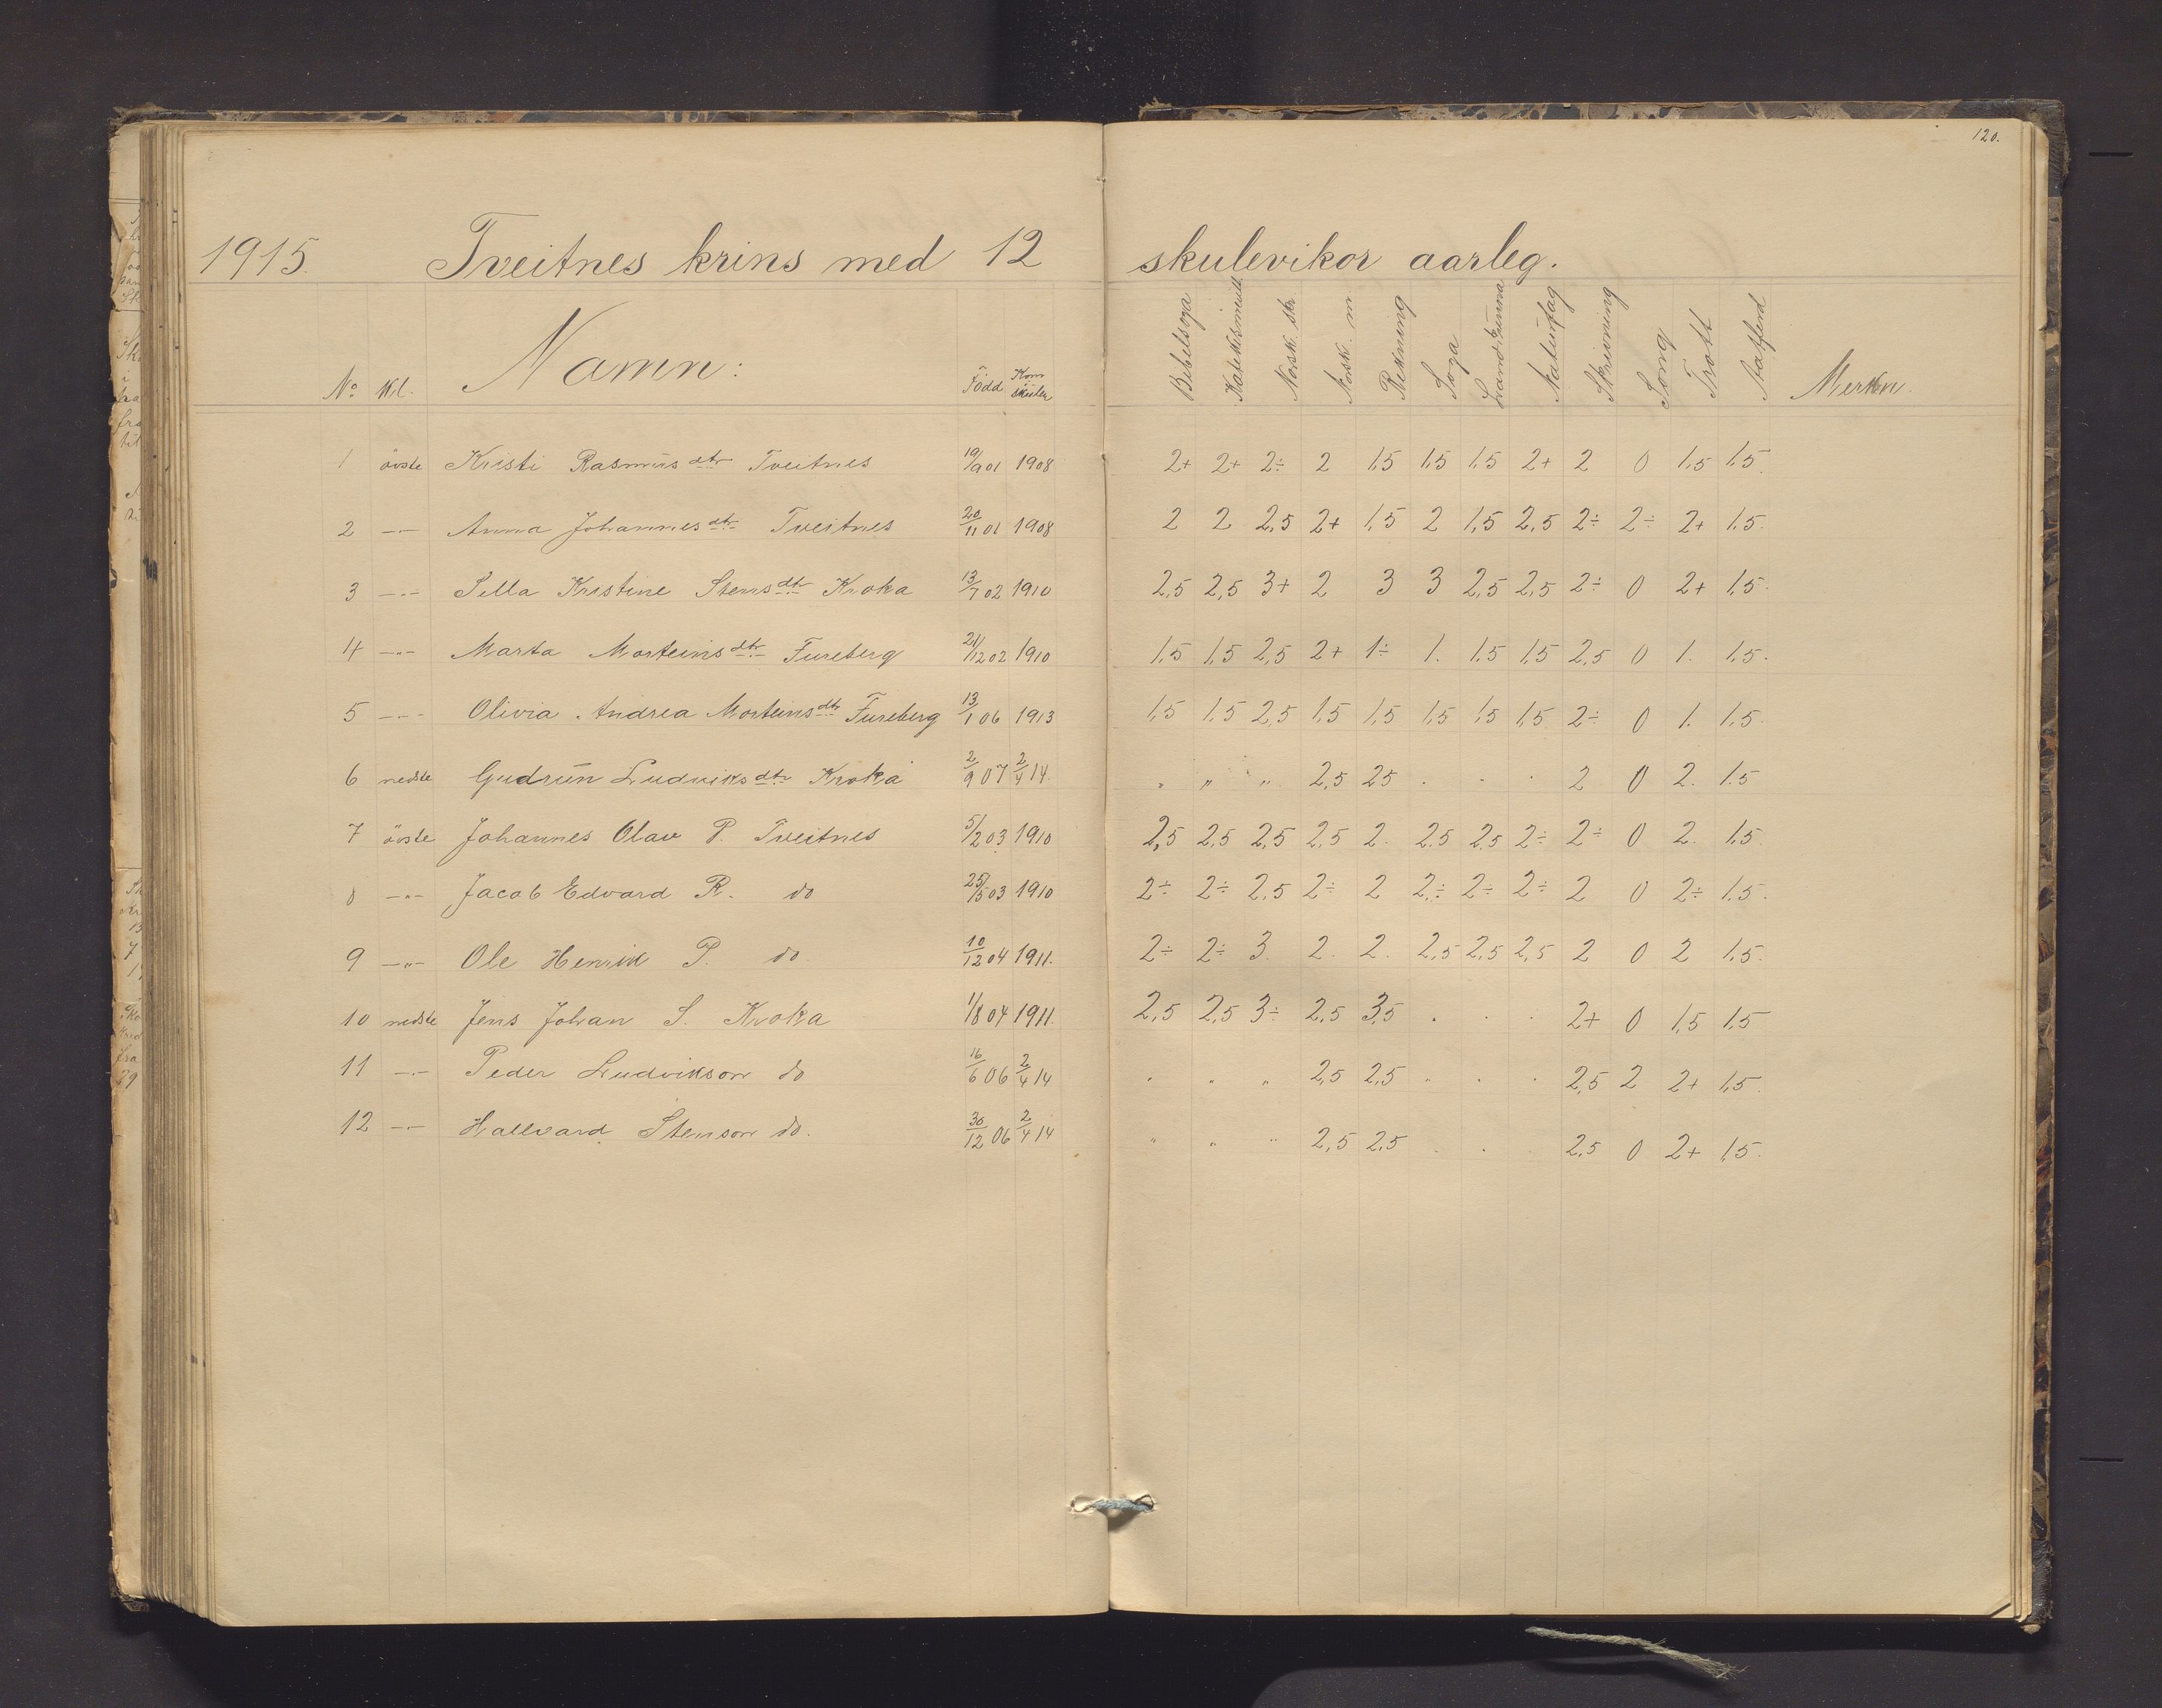 120.
1915. Tveitnes krins med 12 skulevikor aarleg.
No Kl. Namn: Född Kom i skulen Bibelsoga Katekismeutt Norsk skr Norsk m Rekning Soga Landkunna Naturfag Skrivning Song Trott Aatferd Merkn.
1 övste Kristi Rasmusdtr Tveitnes 19/9 01 1908 2+ 2+ 2÷ 2 1,5 1,5 1,5 2+ 2 0 1,5 1,5.
2 -"- Anna Johannesdtr Tveitnes 20/11 01 1908 2 2 2,5 2+ 1,5 2 1,5 2,5 2÷ 2÷ 2+ 1,5.
3 -"- Sella Kristine Stensdtr Kroka 13/7 02 1910 2,5 2,5 3+ 2 3 3 2,5 2,5 2÷ 0 2+ 1,5.
4 -"- Marta Morteinsdtr Fureberg 21/12 02 1910 1,5 1,5 2,5 2+ 1÷ 1. 1,5 1,5 2,5 0 1. 1,5.
5 -"- Olivia Andrea Morteinsdtr Fureberg 13/1 06 1913 1,5 1,5 2,5 1,5 1,5 1,5 1,5 1,5 2÷ 0 1. 1,5.
6 nedste Gudrun Ludviksdtr Kroka 2/9 07 2/4 14. " " " 2,5 2,5 . . . 2 0 2. 1.5
7 övste Johannes Olav P. Tveitnes 5/2 03 1910 2,5 2,5 2,5 2,5 2. 2.5 2.5 2÷ 2÷ 0 2. 1,5.
8 -"- Jacob Edvard R. do 25/5 03 1910 2÷ 2÷ 2,5 2÷ 2 2÷ 2÷ 2÷ 2 0 2÷ 1,5.
9 -"- Ole Henrik P. do. 10/12 04 1911. 2÷ 2÷ 3. 2. 2. 2,5 2,5 2,5 2 0 2 1,5.
10 nedste Jens Johan S. Kroka 1/8 04 1911. 2,5 2,5 3÷ 2,5 3,5 . . . 2+ 0 1,5 1,5
11 -"- Peder Ludvikson do 16/6 06 2/4 14 " " " 2,5 2,5 " . . 2,5 2 2+ 1,5.
12 -"- Hallvard Stenson do. 30/12 06 2/4 14 " " " 2,5 2,5 . . . 2,5 0 2+ 1,5.